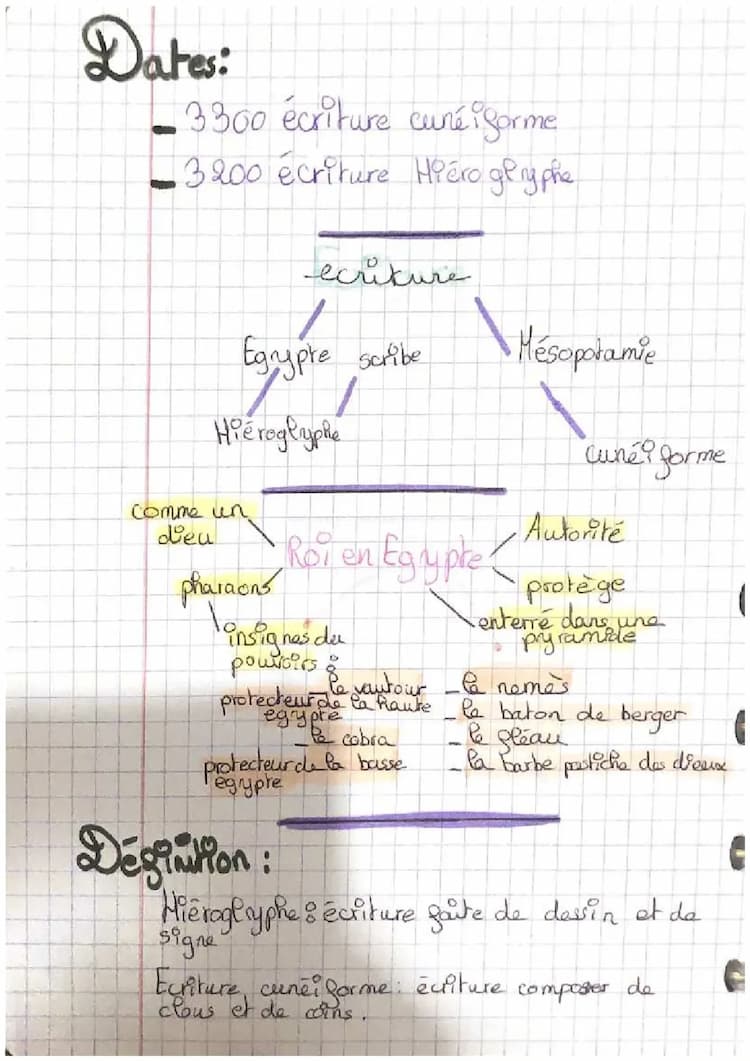 Dates:
- 3300 écriture cunéiforme
- 3200 écriture Hiéroglyphe
ecriture
Egypte scribe
Mésopotamie
Hiéroglyphe
cunéiforme
comme un
dieu
Roi en Egypte
Autorité
pharaons
protège
enterré dans une
pyramide
insignes du
pouvoirs :
- le vautour
protecteur de la haute
egypte
- le cobra
protecteur de la basse
egypte
- le nemès
- le baton de berger
- le fléau
- la barbe postiche des dieux
Définition :
Hiéroglyphe : écriture faite de dessin et de
signe
Ecriture cunéiforme : écriture composer de
clous et de coins.